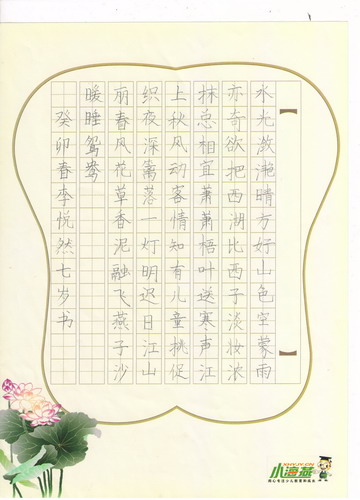 水光潋滟晴方好山色空蒙雨
亦奇欲把西湖比西子淡妆浓
抹总相宜萧萧梧叶送寒声江
上秋风动客情知有儿童挑促
织夜深篱落一灯明迟日江山
丽春风花草香泥融飞燕子沙
暖睡鸳鸯
癸卯春李悦然七岁书
小海燕